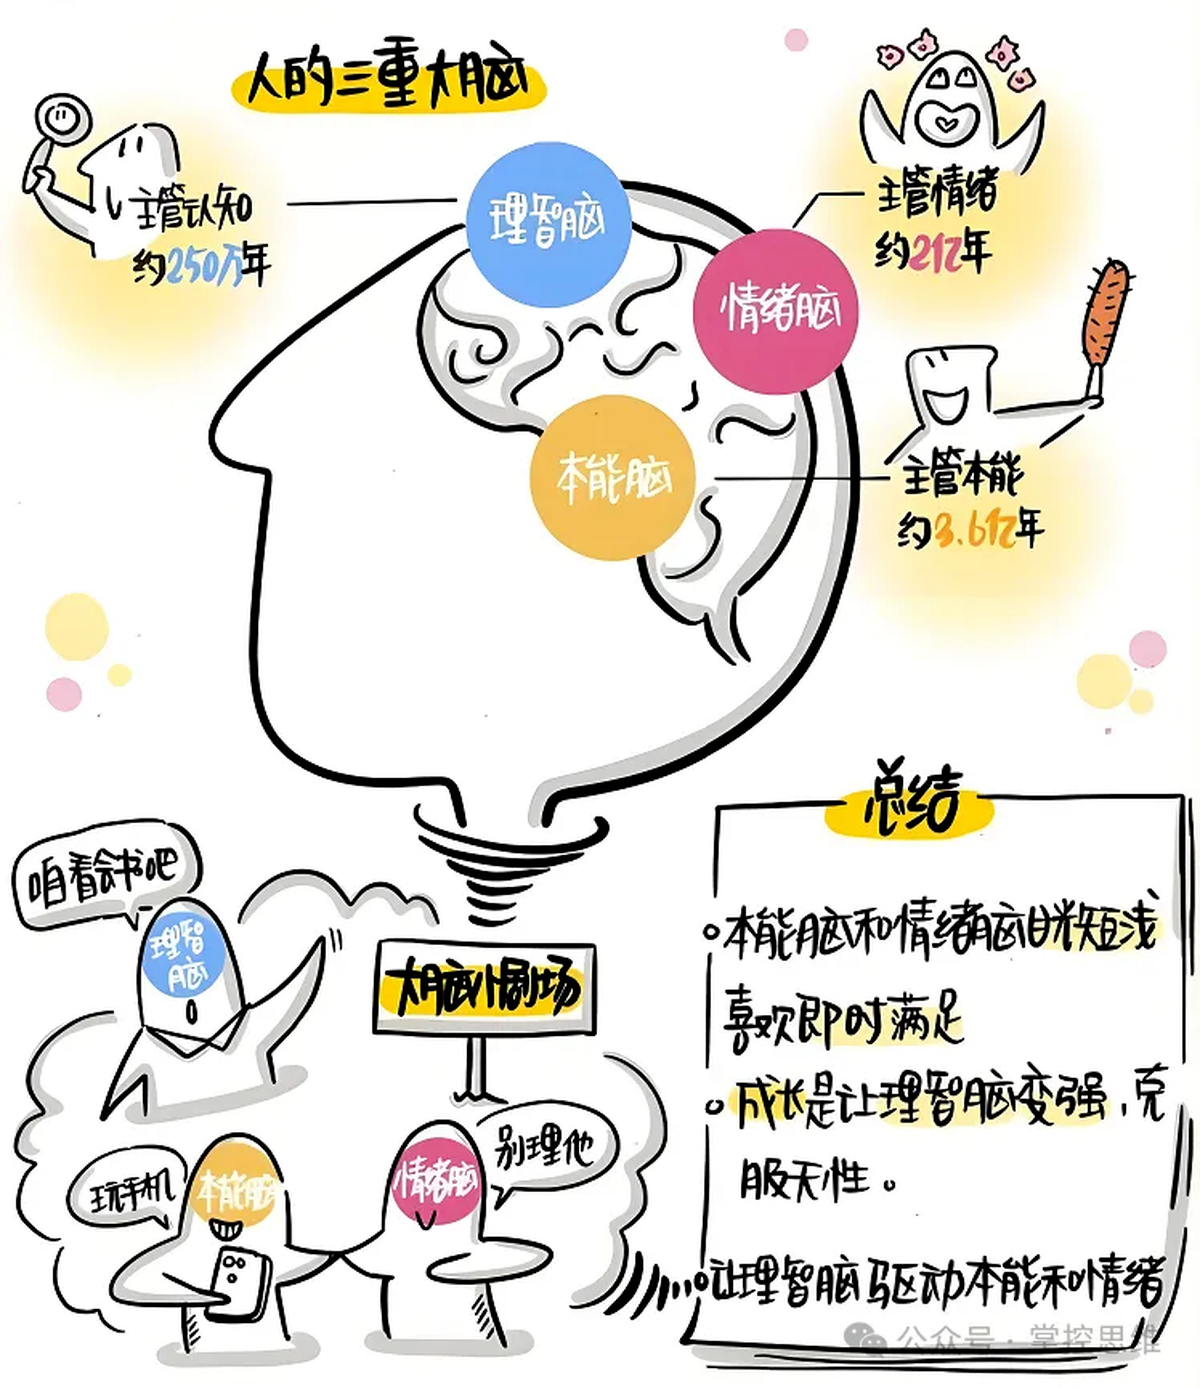 人的三重大脑
主管认知
约250万年
理智脑
主管情绪
约2亿年
情绪脑
本能脑
主管本能
约3.6亿年
咱看会书吧
理智
脑
大脑小剧场
玩手机
本能脑
情绪脑
别理他
总结
本能脑和情绪脑目光短浅
喜欢即时满足
成长是让理智脑变强，克
服天性。
让理智脑驱动本能和情绪
公众号·掌控思维